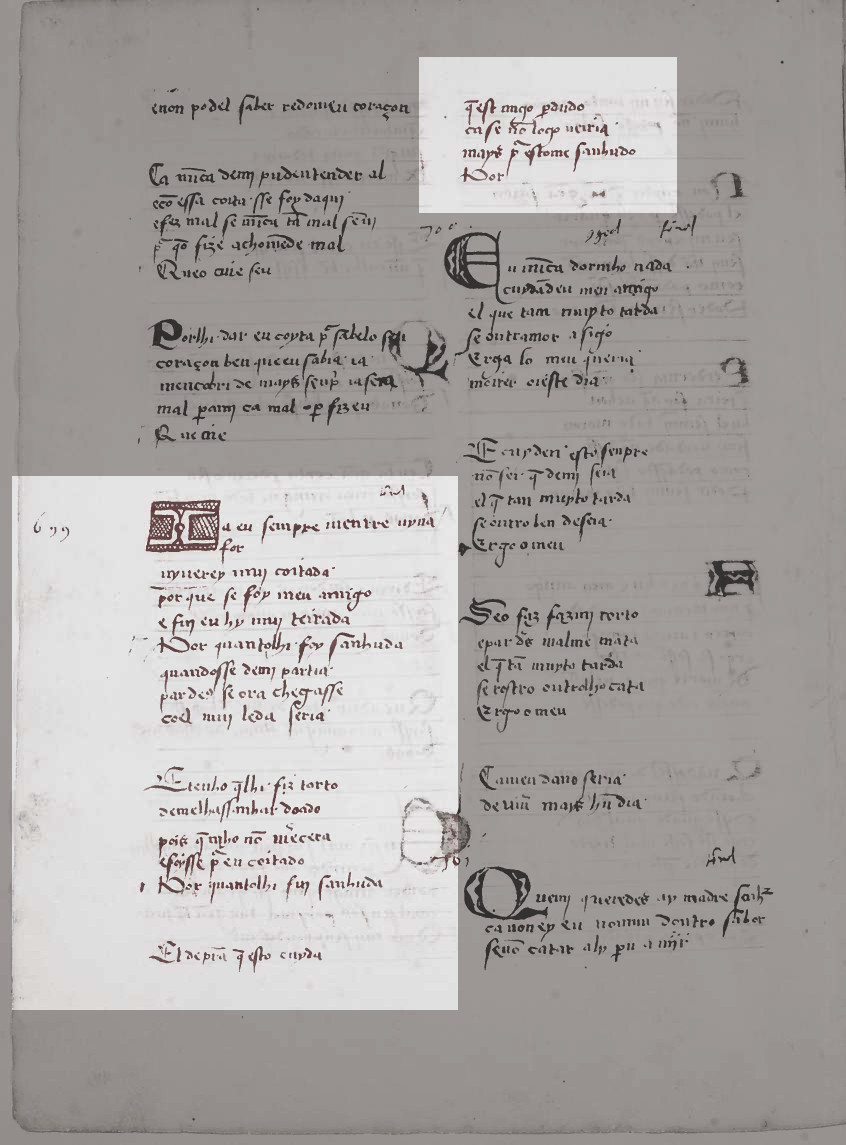 enon podel saber redomeu coraçon
Ca nũca demj pudentender al
ecõ essa coita sse foy daqui
efez mal se nũca tã mal senj
p̃ qõ fize achomede mal
Queo cuie seu
Porlhi dar eu coyta p̃ sabelo
coraçon ben queeu sabia ia
mencobri de mays senp̃
mal p̱ami ca mal p̱ fizeu
Que cuie
699
Ia eu sempre mentre uyua
for
uyuerey mui coitada
por que se foy meu amigo
e fui eu hy mui terrada
Por quantolhi foy sanhuda
quandosse demj partia
par deꝯ se ora chegasse
coel mui leda seria
E tenho q̃lhi fiz torto
demelhassanhar doado
poys q̃ mho nõ merecera
efoysse p̃ eu coitado
Por quantolhi fuy sanhuda
El depram q̃ esto cuyda
q̃ est migo p̱dudo
ca se nõ logo ueiria
mays p̃ estome sanhudo
Por
700
Eu nũca dormho nada
cuydãdeu meu amigo
el que tam muyto tarda
se outramor a sigo
Ergã lo meu q̃rria
morrer oieste dia
E cuyden esto senpre
nõ sei q̃ demj seia
el q̃ tan muyto tarda
se outro ben deseia
Ergo o meu
Seo faz faz mj torto
epar dꝯ malme mata
el q̃ tã muyto tarda
se rostro outrolho cata
Ergo o meu
Ca meu dano seria
de uiuer mays hũ dia
701
Quem queredes ay madre
ca non ey eu nomun doutro sabor
senõ catar aly p̱u a